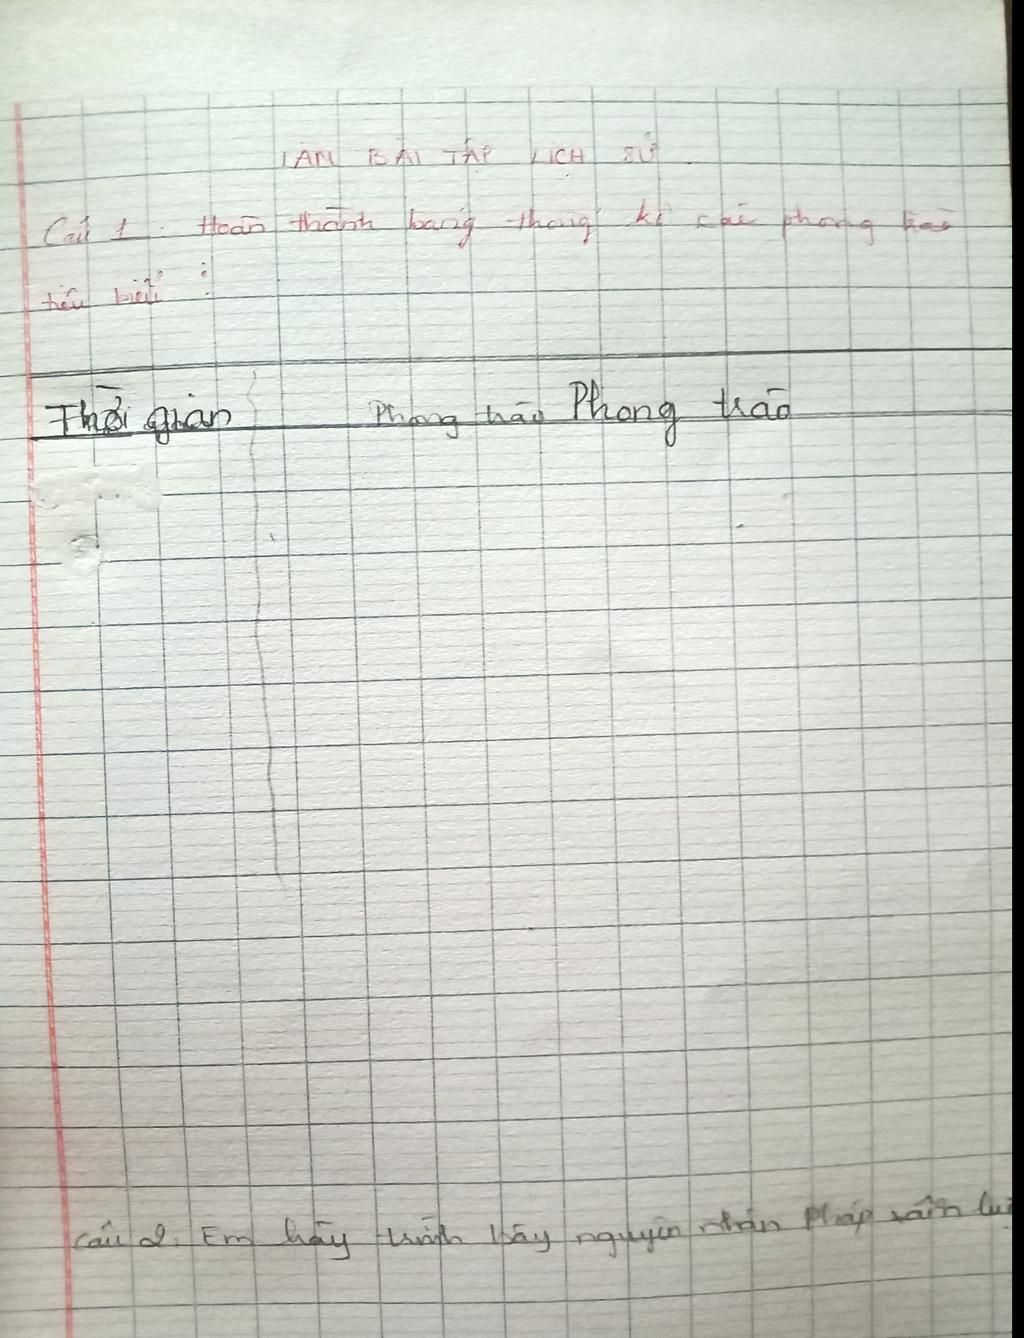 LÀM BÀI TẬP LỊCH SỬ
Câu 1: Hoàn thành bảng thống kê các phong trào
tiêu biểu:
Thời gian Phong trào Phong trào
câu 2. Em hãy trình bày nguyên nhân Pháp xâm lư